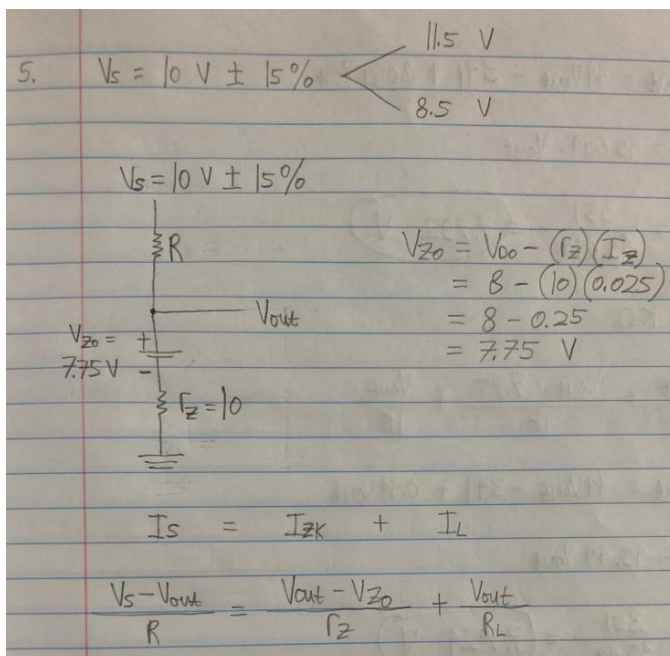 11.5 V
5. Vs = 10 V ± 15%
8.5 V
Vs = 10 V ± 15%
R
Vout
Vzo = +
7.75 V -
rz = 10
Vzo = VDO - (rz)(Iz)
= 8 - (10)(0.025)
= 8 - 0.25
= 7.75 V
Is = IZK + IL
Vs - Vout / R = Vout - Vzo / rz + Vout / RL